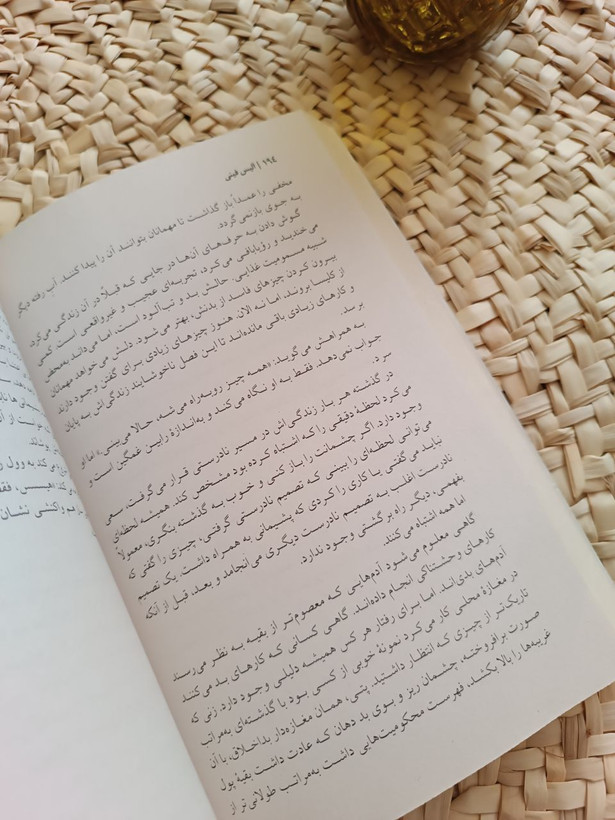 ۱۹۴ | آلیس فینی
مخفی را عمداً باز گذاشت تا مهمانان بتوانند آن را پیدا کنند. آب رفته دیگر
به جوی بازنمی‌گردد.
گوش دادن به حرف‌های آن‌ها در جایی که قبلاً در آن زندگی می‌کرد
می‌خندید و رؤیابافی می‌کرد، تجربه‌ای عجیب و غیرواقعی است. کمی
شبیه مسمومیت غذایی. حالش بد و تب‌آلود است، اما می‌داند به‌محض
بیرون کردن چیزهای فاسد از بدنش، بهتر می‌شود. دلش می‌خواهد مهمانان
از کلیسا بروند. اما نه الان. هنوز چیزهای زیادی برای گفتن وجود دارند
و کارهای زیادی باقی مانده‌اند تا این فصل ناخوشایند زندگی‌اش به پایان
برسد.
به همراهش می‌گوید: «همه چیز روبه‌راه می‌شه، حالا می‌بینی.» اما او
جواب نمی‌دهد. فقط به او نگاه می‌کند و به‌اندازهٔ رابین غمگین است و
سرد.
در گذشته هر بار زندگی‌اش در مسیر نادرستی قرار می‌گرفت، سعی
می‌کرد لحظهٔ دقیقی را که اشتباه کرده بود مشخص کند. همیشه لحظه‌ای
وجود دارد. اگر چشمانت را باز کنی و خوب به گذشته بنگری، معمولاً
می‌توانی لحظه‌ای را ببینی که تصمیم نادرستی گرفتی، چیزی را گفتی که
نباید می‌گفتی یا کاری را کردی که پشیمانی به همراه داشت. یک تصمیم
نادرست اغلب به تصمیم نادرست دیگری می‌انجامد و بعد، قبل از آنکه
بفهمی، دیگر راه برگشتی وجود ندارد.
اما همه اشتباه می‌کنند.
گاهی معلوم می‌شود آدم‌هایی که معصوم‌تر از بقیه به نظر می‌رسند
کارهای وحشتناکی انجام داده‌اند. گاهی کسانی که کارهای بد می‌کنند
آدم‌های بدی‌اند. اما برای رفتار هر کس همیشه دلیلی وجود دارد. زنی که
در مغازهٔ محلی کار می‌کرد نمونهٔ خوبی از کسی بود با گذشته‌ای به‌مراتب
تاریک‌تر از چیزی که انتظار داشتید. پتی، همان مغازه‌دار بداخلاق، با آن
صورت برافروخته، چشمان ریز و بوی بد دهان که عادت داشت بقیهٔ پول
غریبه‌ها را بالا بکشد، فهرست محکومیت‌هایی داشت به‌مراتب طولانی‌تر از